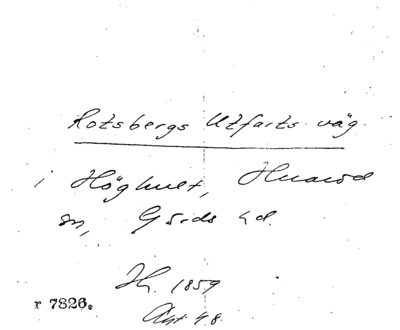 Rotsbergs Utfarts väg
i Höghult, Huaröd
sn, Gärds hd.
Jh. 1859
Akt 48.
r 7826.